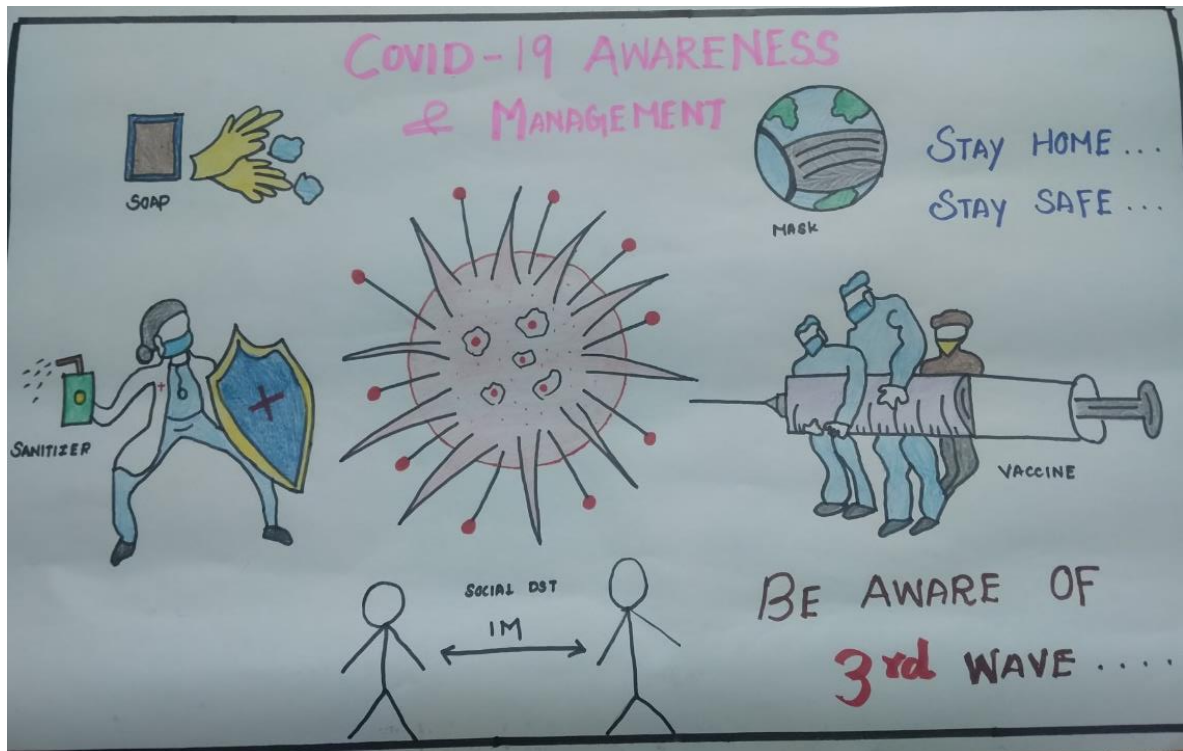 COVID-19 AWARENESS
& MANAGEMENT
SOAP
MASK
STAY HOME...
STAY SAFE...
SANITIZER
VACCINE
SOCIAL DST
1M
BE AWARE OF
3rd WAVE....